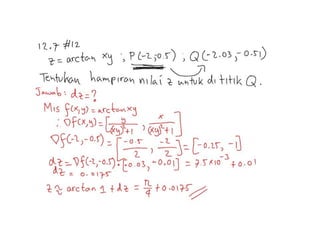 12.7 #12
z = arctan xy ; P(-2,-0.5) ; Q(-2.03, -0.51)
Tentukan hampiran nilai z untuk di titik Q.
Jawab: dz = ?
Mis f(x,y) = arctan xy
; ∇f(x,y) = [y/((xy)²+1) , x/((xy)²+1)]
∇f(-2,-0.5) = [-0.5/2 , -2/2] = [-0.25, -1]
dz = ∇f(-2,-0.5)·[-0.03, -0.01] = 7.5×10⁻³ + 0.01
dz = 0.0175
z ≈ arctan 1 + dz = π/4 + 0.0175